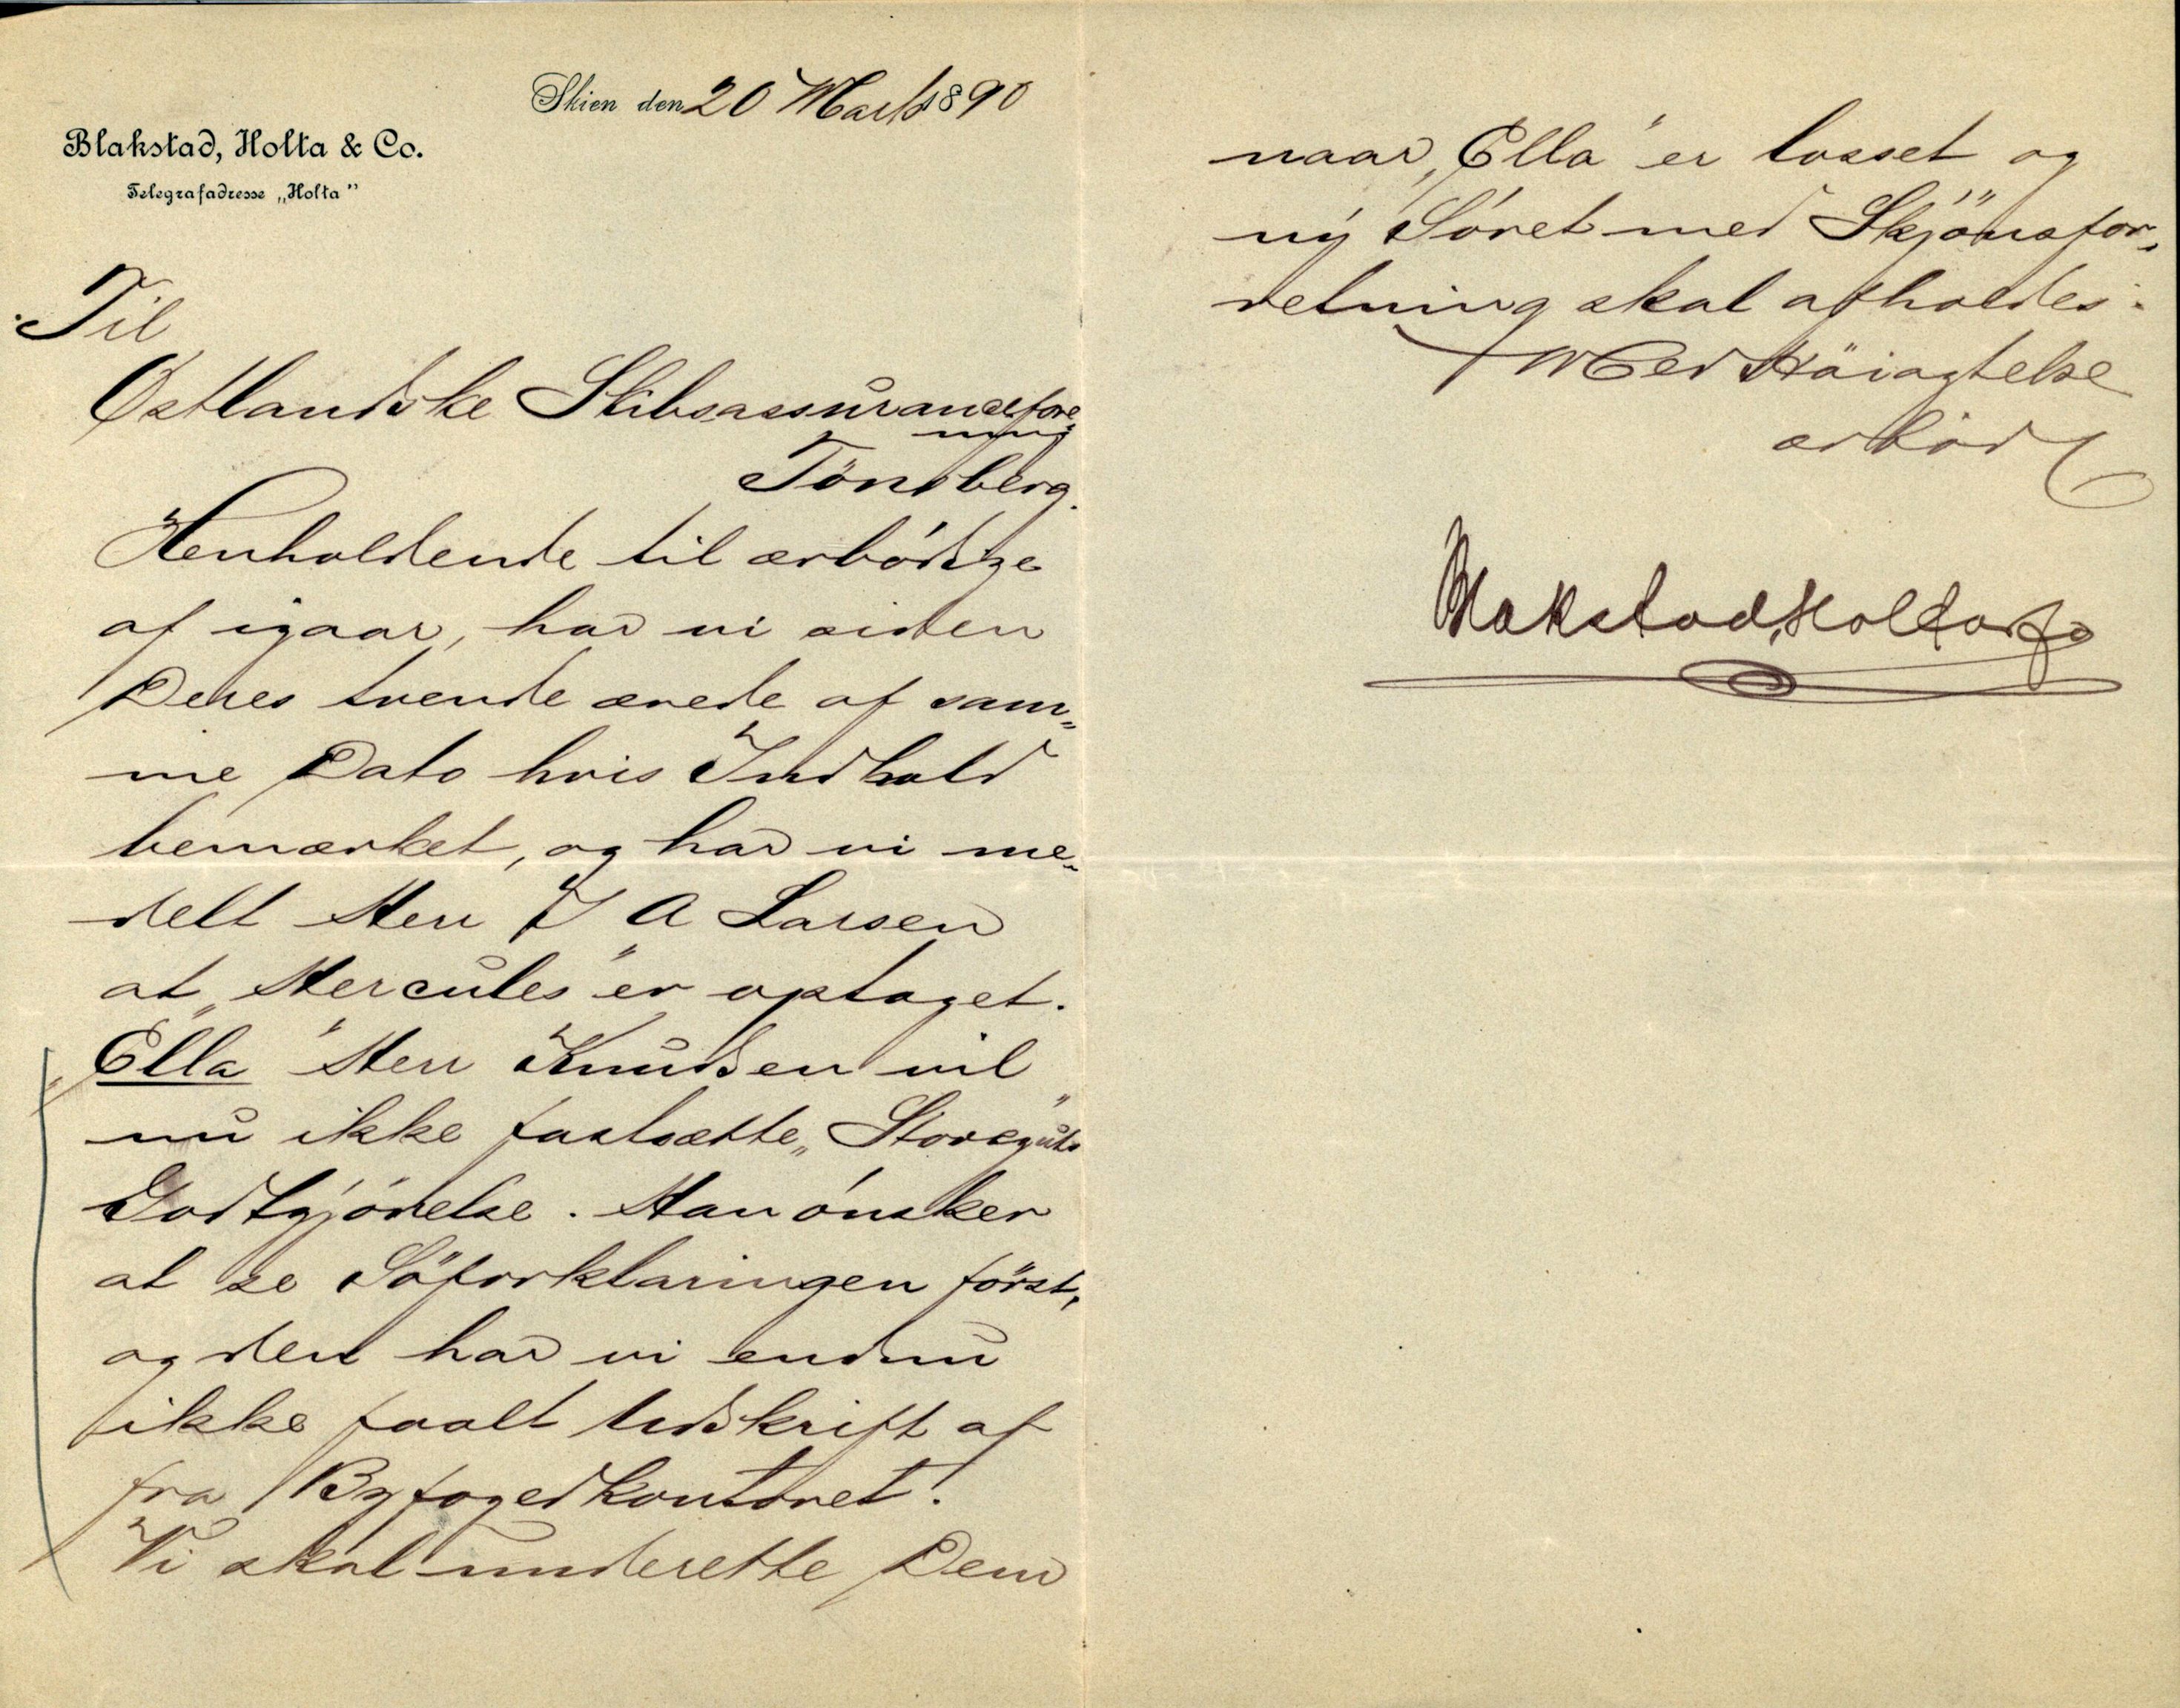 Skien den 20 Marts 1890
Blakstad, Holta & Co.
Telegrafadresse „Holta"
Til
Østlandske Skibsassurancefore-
ning
Tönsberg.
Henholdende til ærbödige
af igaar, har vi siden
Deres tvende ærede af sam-
me Dato hvis Indhold
bemærket, og har vi me-
delt Herr J A Larsen
at „Hercules" er optaget.
„Ella" Herr Knudsen vil
nu ikke fastsætte „Storeguts"
Godtgjörelse. Han önsker
at se Söforklaringen först,
og den har vi endnu
ikke faaet Udskrift af
fra Byfogedkontoret.
Vi skal underette Dem
naar „Ella" er losset og
ny Söret med Skjönsfor-
retning skal afholdes.
Med Höiagtelse
ærböd
Blakstad, Holta & Co